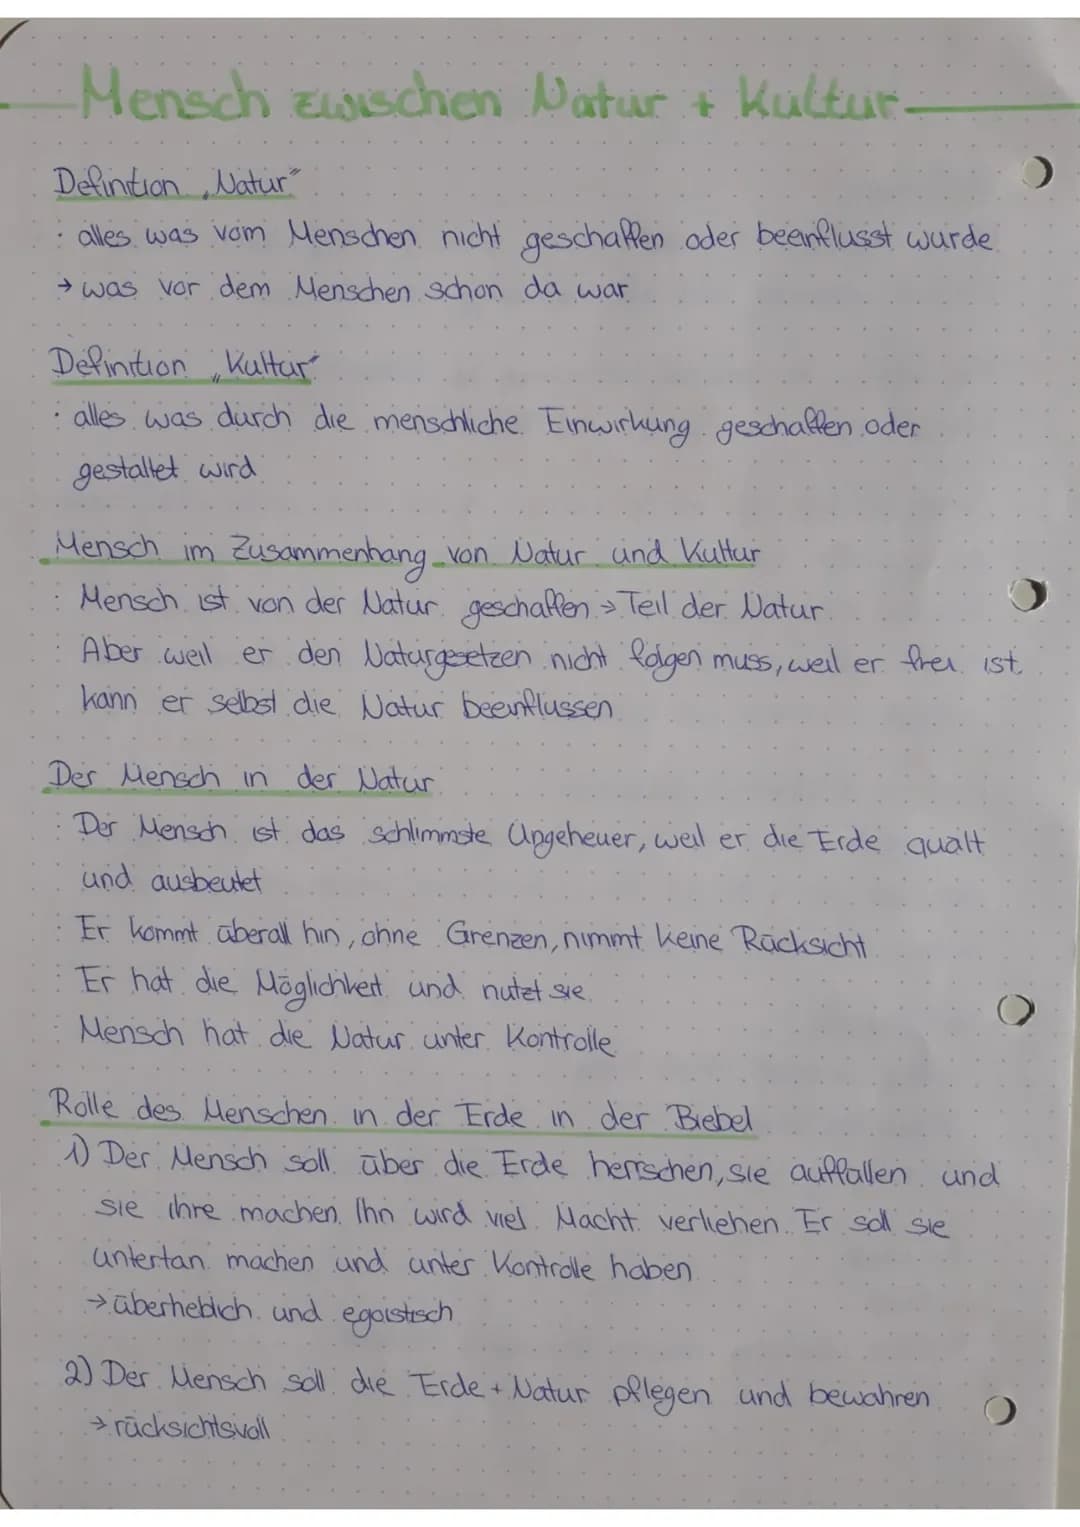 Mensch zwischen Natur + Kultur
Definition „Natur"
· alles was vom Menschen nicht geschaffen oder beeinflusst wurde
→ was vor dem Menschen schon da war
Definition „Kultur"
· alles was durch die menschliche Einwirkung geschaffen oder
gestaltet wird
Mensch im Zusammenhang von Natur und Kultur
· Mensch ist von der Natur geschaffen → Teil der Natur
· Aber weil er den Naturgesetzen nicht folgen muss, weil er frei ist
kann er selbst die Natur beeinflussen
Der Mensch in der Natur
· Der Mensch ist das schlimmste Ungeheuer, weil er die Erde quält
und ausbeutet
· Er kommt überall hin, ohne Grenzen, nimmt keine Rücksicht
· Er hat die Möglichkeit und nutzt sie
· Mensch hat die Natur unter Kontrolle
Rolle des Menschen in der Erde in der Biebel
1) Der Mensch soll über die Erde herrschen, sie auffallen und
sie ihre machen. Ihn wird viel Macht verliehen. Er soll sie
untertan machen und unter Kontrolle haben
→ überheblich und egoistisch
2) Der Mensch soll die Erde + Natur pflegen und bewahren
→ rücksichtsvoll